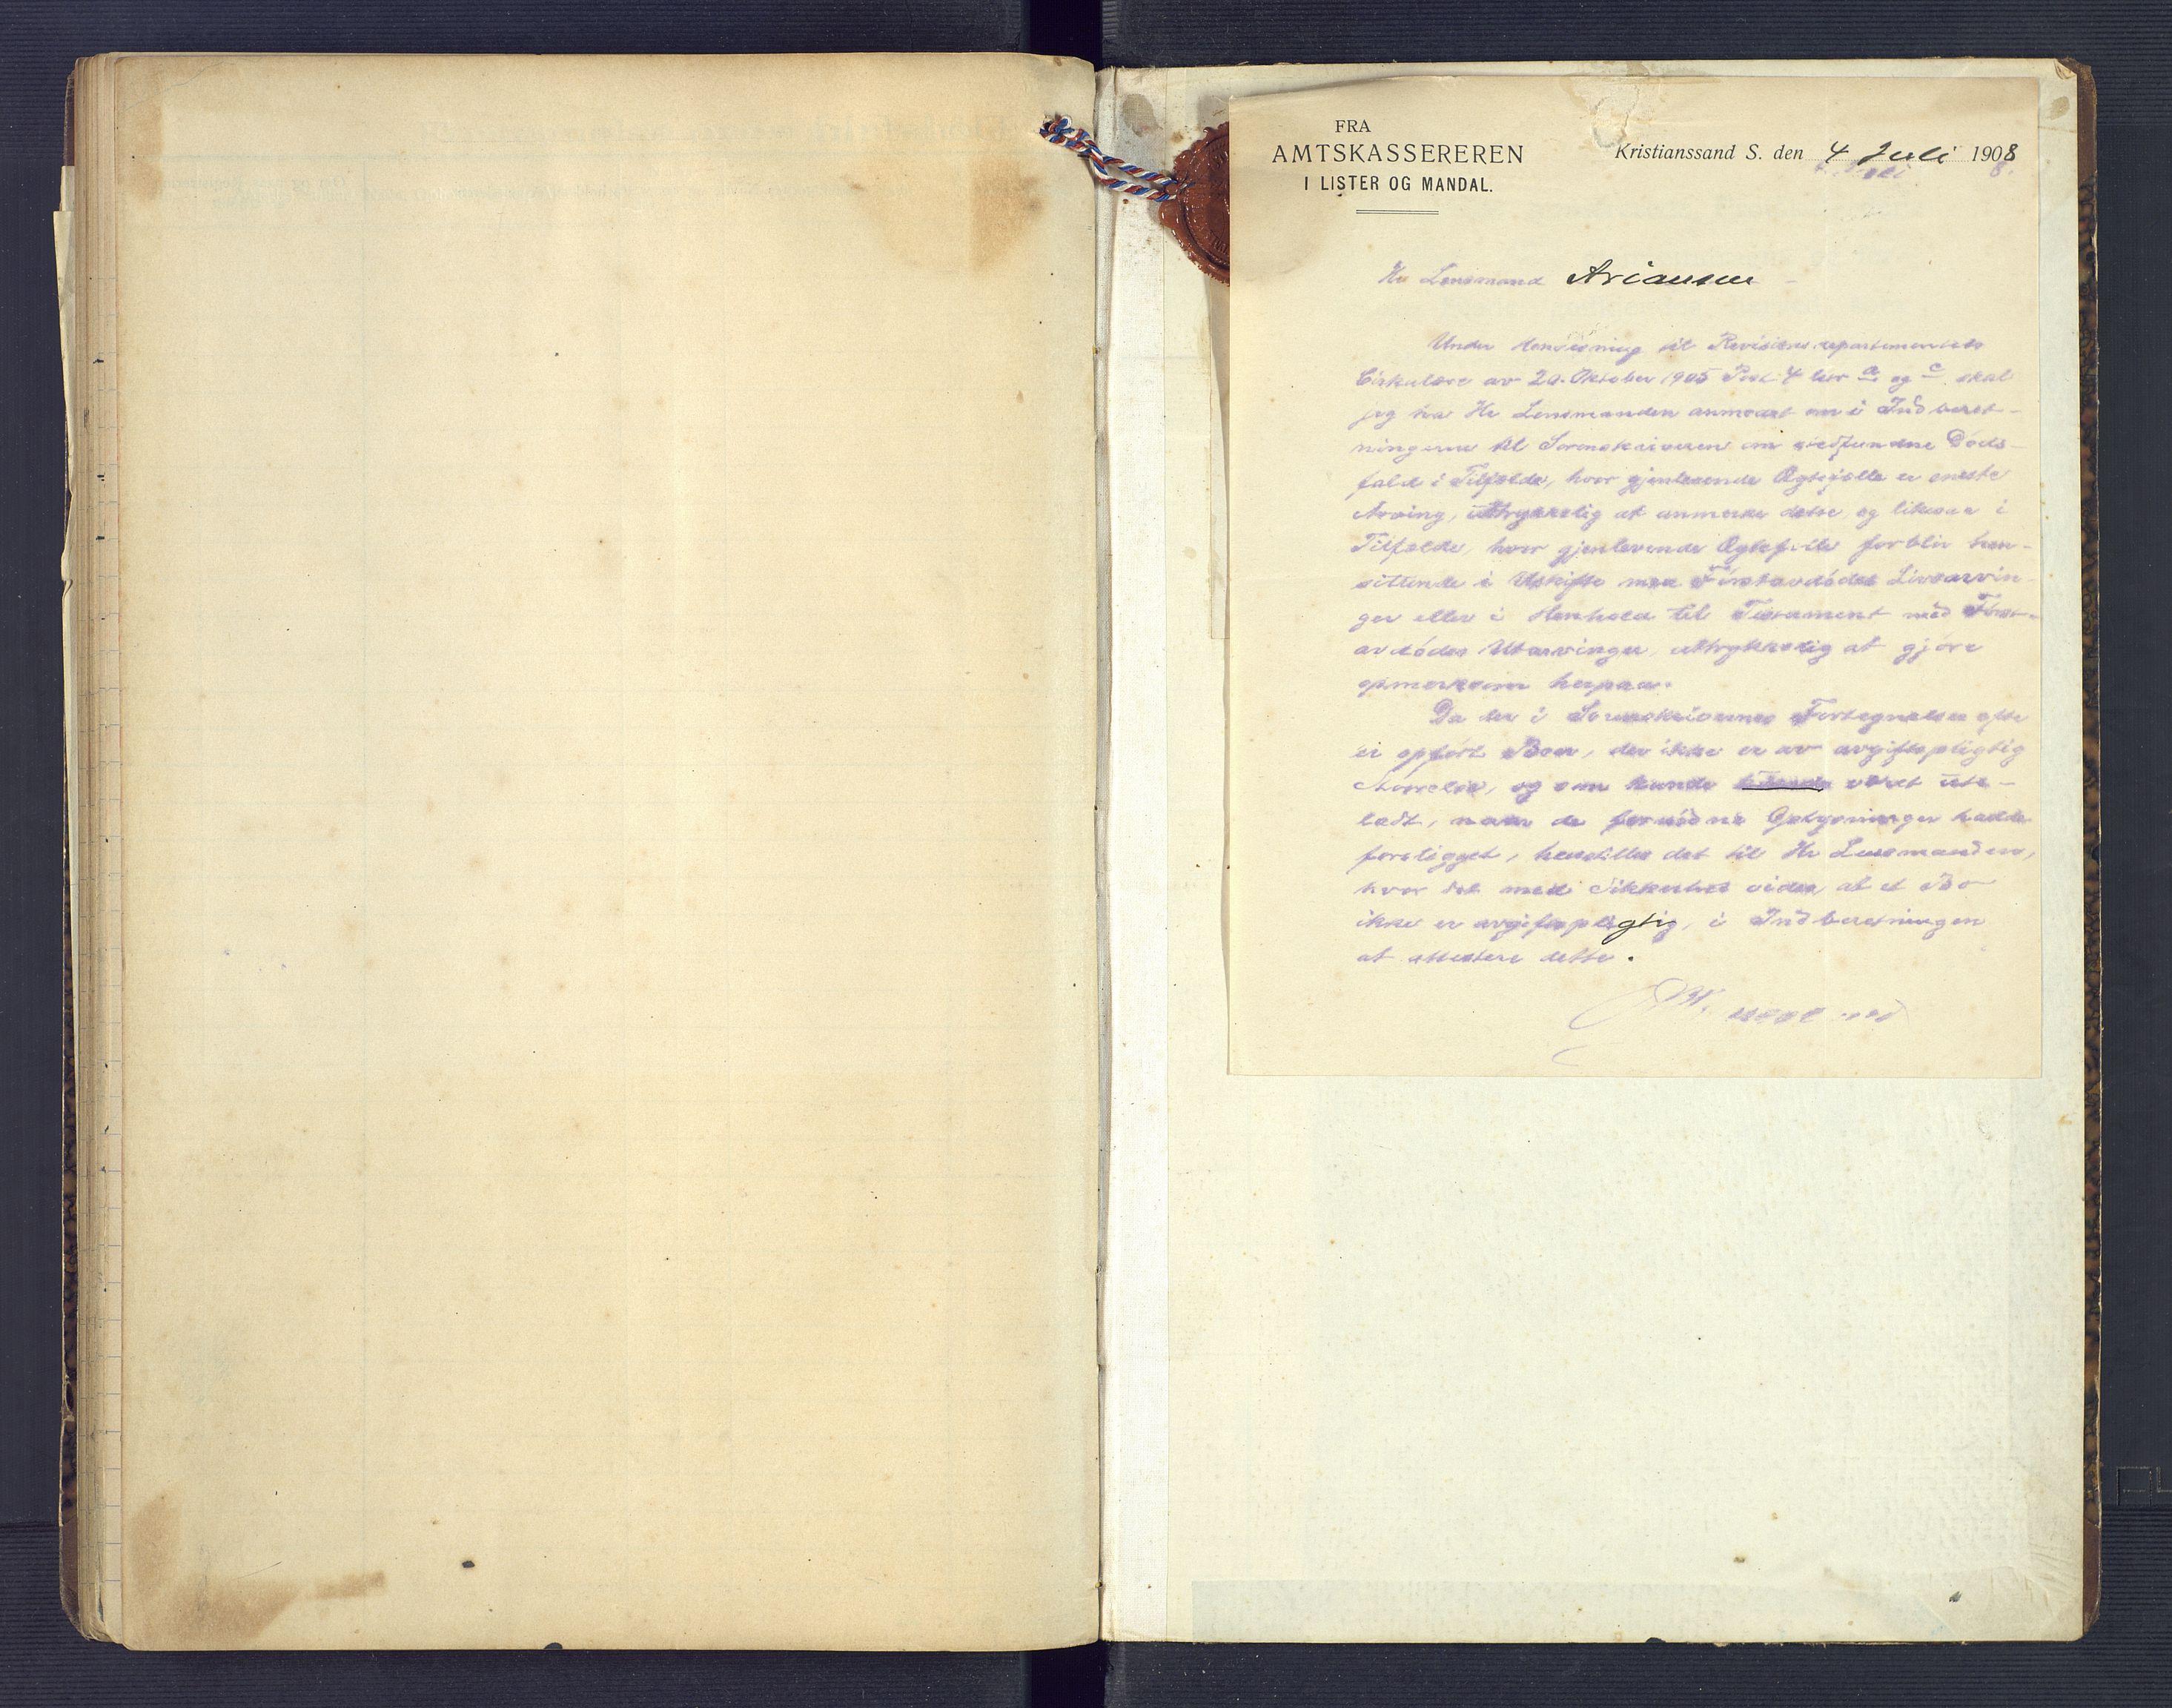 FRA
AMTSKASSEREREN
I LISTER OG MANDAL.
Kristianssand S. den 4 Juli 1908
Hr Lensmand Ariansen
Under Henvisning til Revisionsdepartementets
Cirkulære av 20. Oktober 1905 Post 4 litr a og c skal
jeg ha Hr Lensmanden anmodet om i Indberet-
ningerne til Sorenskriveren om stedfundne Døds-
fald i Tilfælde, hvor gjenlevende Ægtefælle er eneste
Arving, uttrykkelig at anmerke dette, og likesaa i
Tilfælde, hvor gjenlevende Ægtefælle forblir hen-
sittende i Uskifte med Førstavdødes Livsarvin-
ger eller i Henhold til Testament med Først-
avdødes Utarvinger, uttrykkelig at gjøre
opmerksom herpaa.
Da der i Sorenskrivernes Fortegnelser ofte
er opført Boer, der ikke er av avgiftspligtig
Størrelse, og som kunde været ute-
ladt, naar de fornødne Oplysninger hadde
foreligget, henstilles det til Hr Lensmanden,
hvor det med Sikkerhet vides, at et Bo
ikke er avgiftspligtig, i Indberetningen
at attestere dette.